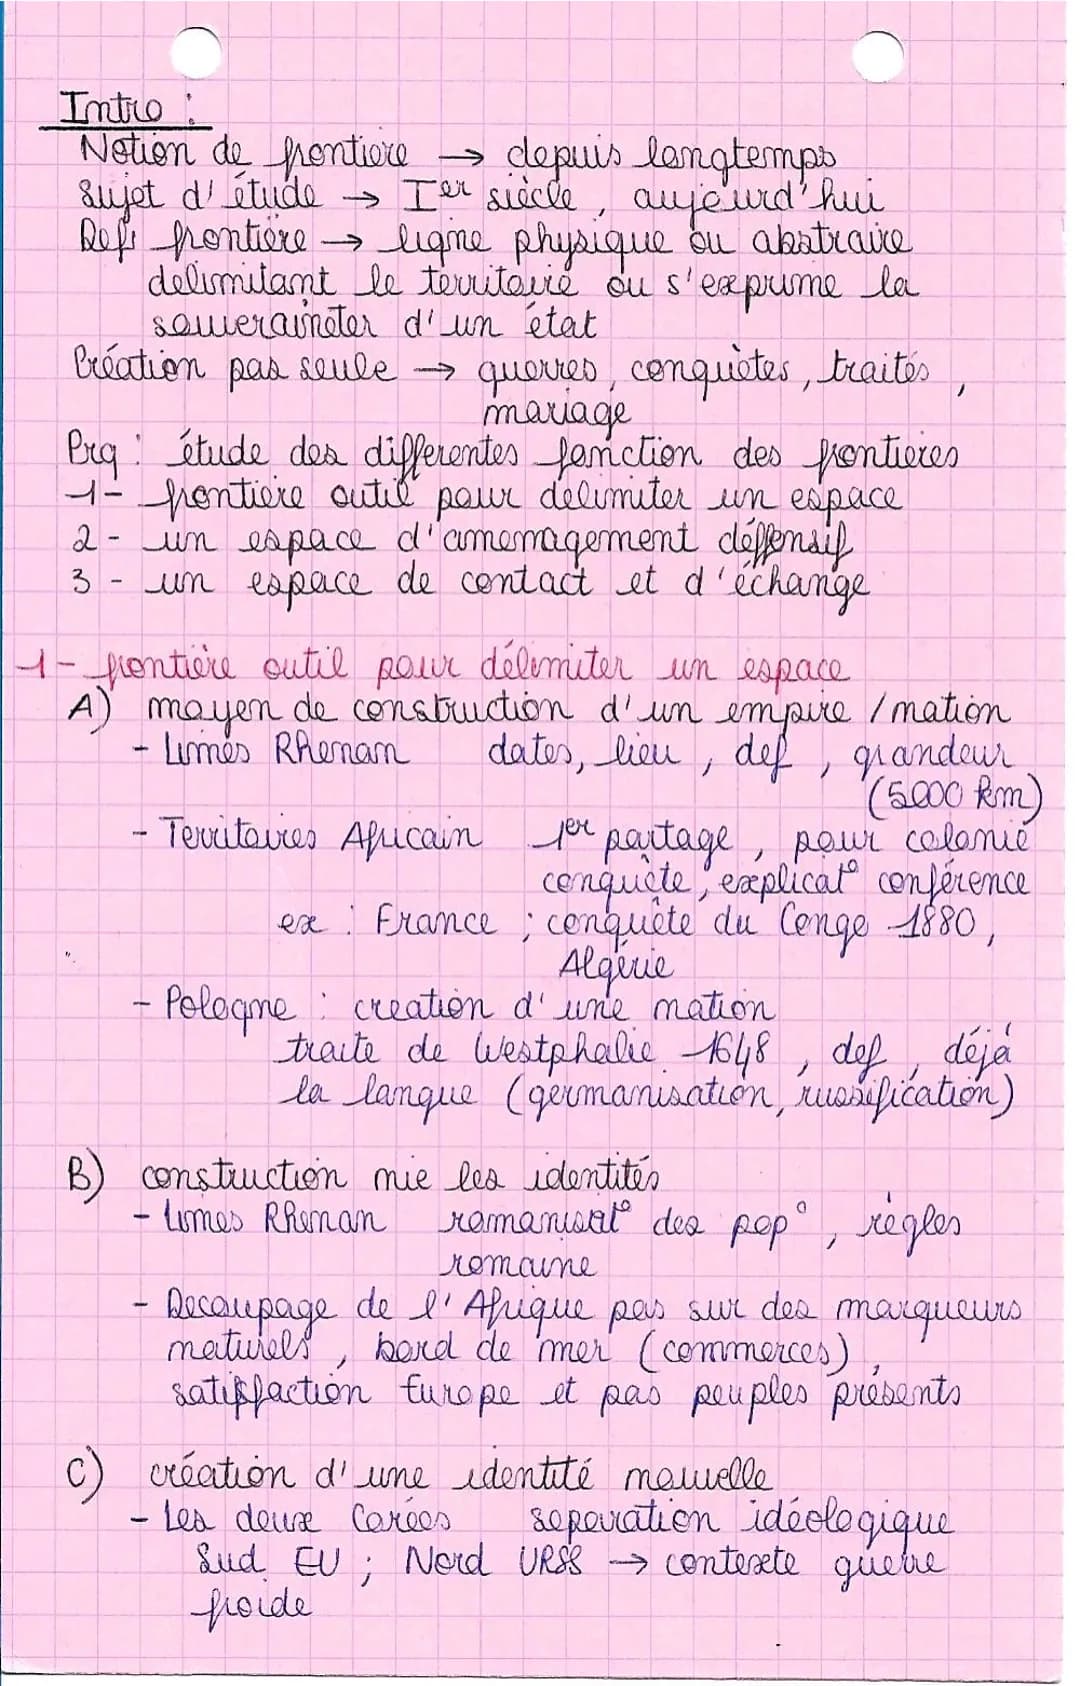 Intro :
Notion de frontiere → depuis longtemps
Sujet d'étude → Ier siècle, aujourd'hui
Def frontière → ligne physique ou abstraire
delimitant le territoire ou s'exprime la
souveraineter d'un état
Création pas seule → guerres, conquètes, traités,
mariage
Prq : étude des differentes fonction des frontieres
1- frontière outil pour délimiter un espace
2- un espace d'amenagement déffensif
3 - un espace de contact et d'échange
1- frontière outil pour délimiter un espace
A) moyen de construction d'un empire / nation
- Limes Rhenan dates, lieu, def, grandeur
(5000 km)
- Territoires Africain 1er partage, pour colonie
conquête, explicat° conférence
ex : France ; conquête du Congo 1880,
Algérie
- Pologne : creation d'une nation
traite de Westphalie 1648, def, déjà
la langue (germanisation, russification)
B) construction nie les identités
- Limes Rhenan romanisat° des pop°, règles
romaine
- Decoupage de l'Afrique pas sur des marqueurs
naturels, bord de mer (commerces),
satisfaction Europe et pas peuples présents
C) création d'une identité nouvelle
- Les deux Corées separation idéologique
Sud EU ; Nord URSS → contexte guerre
froide